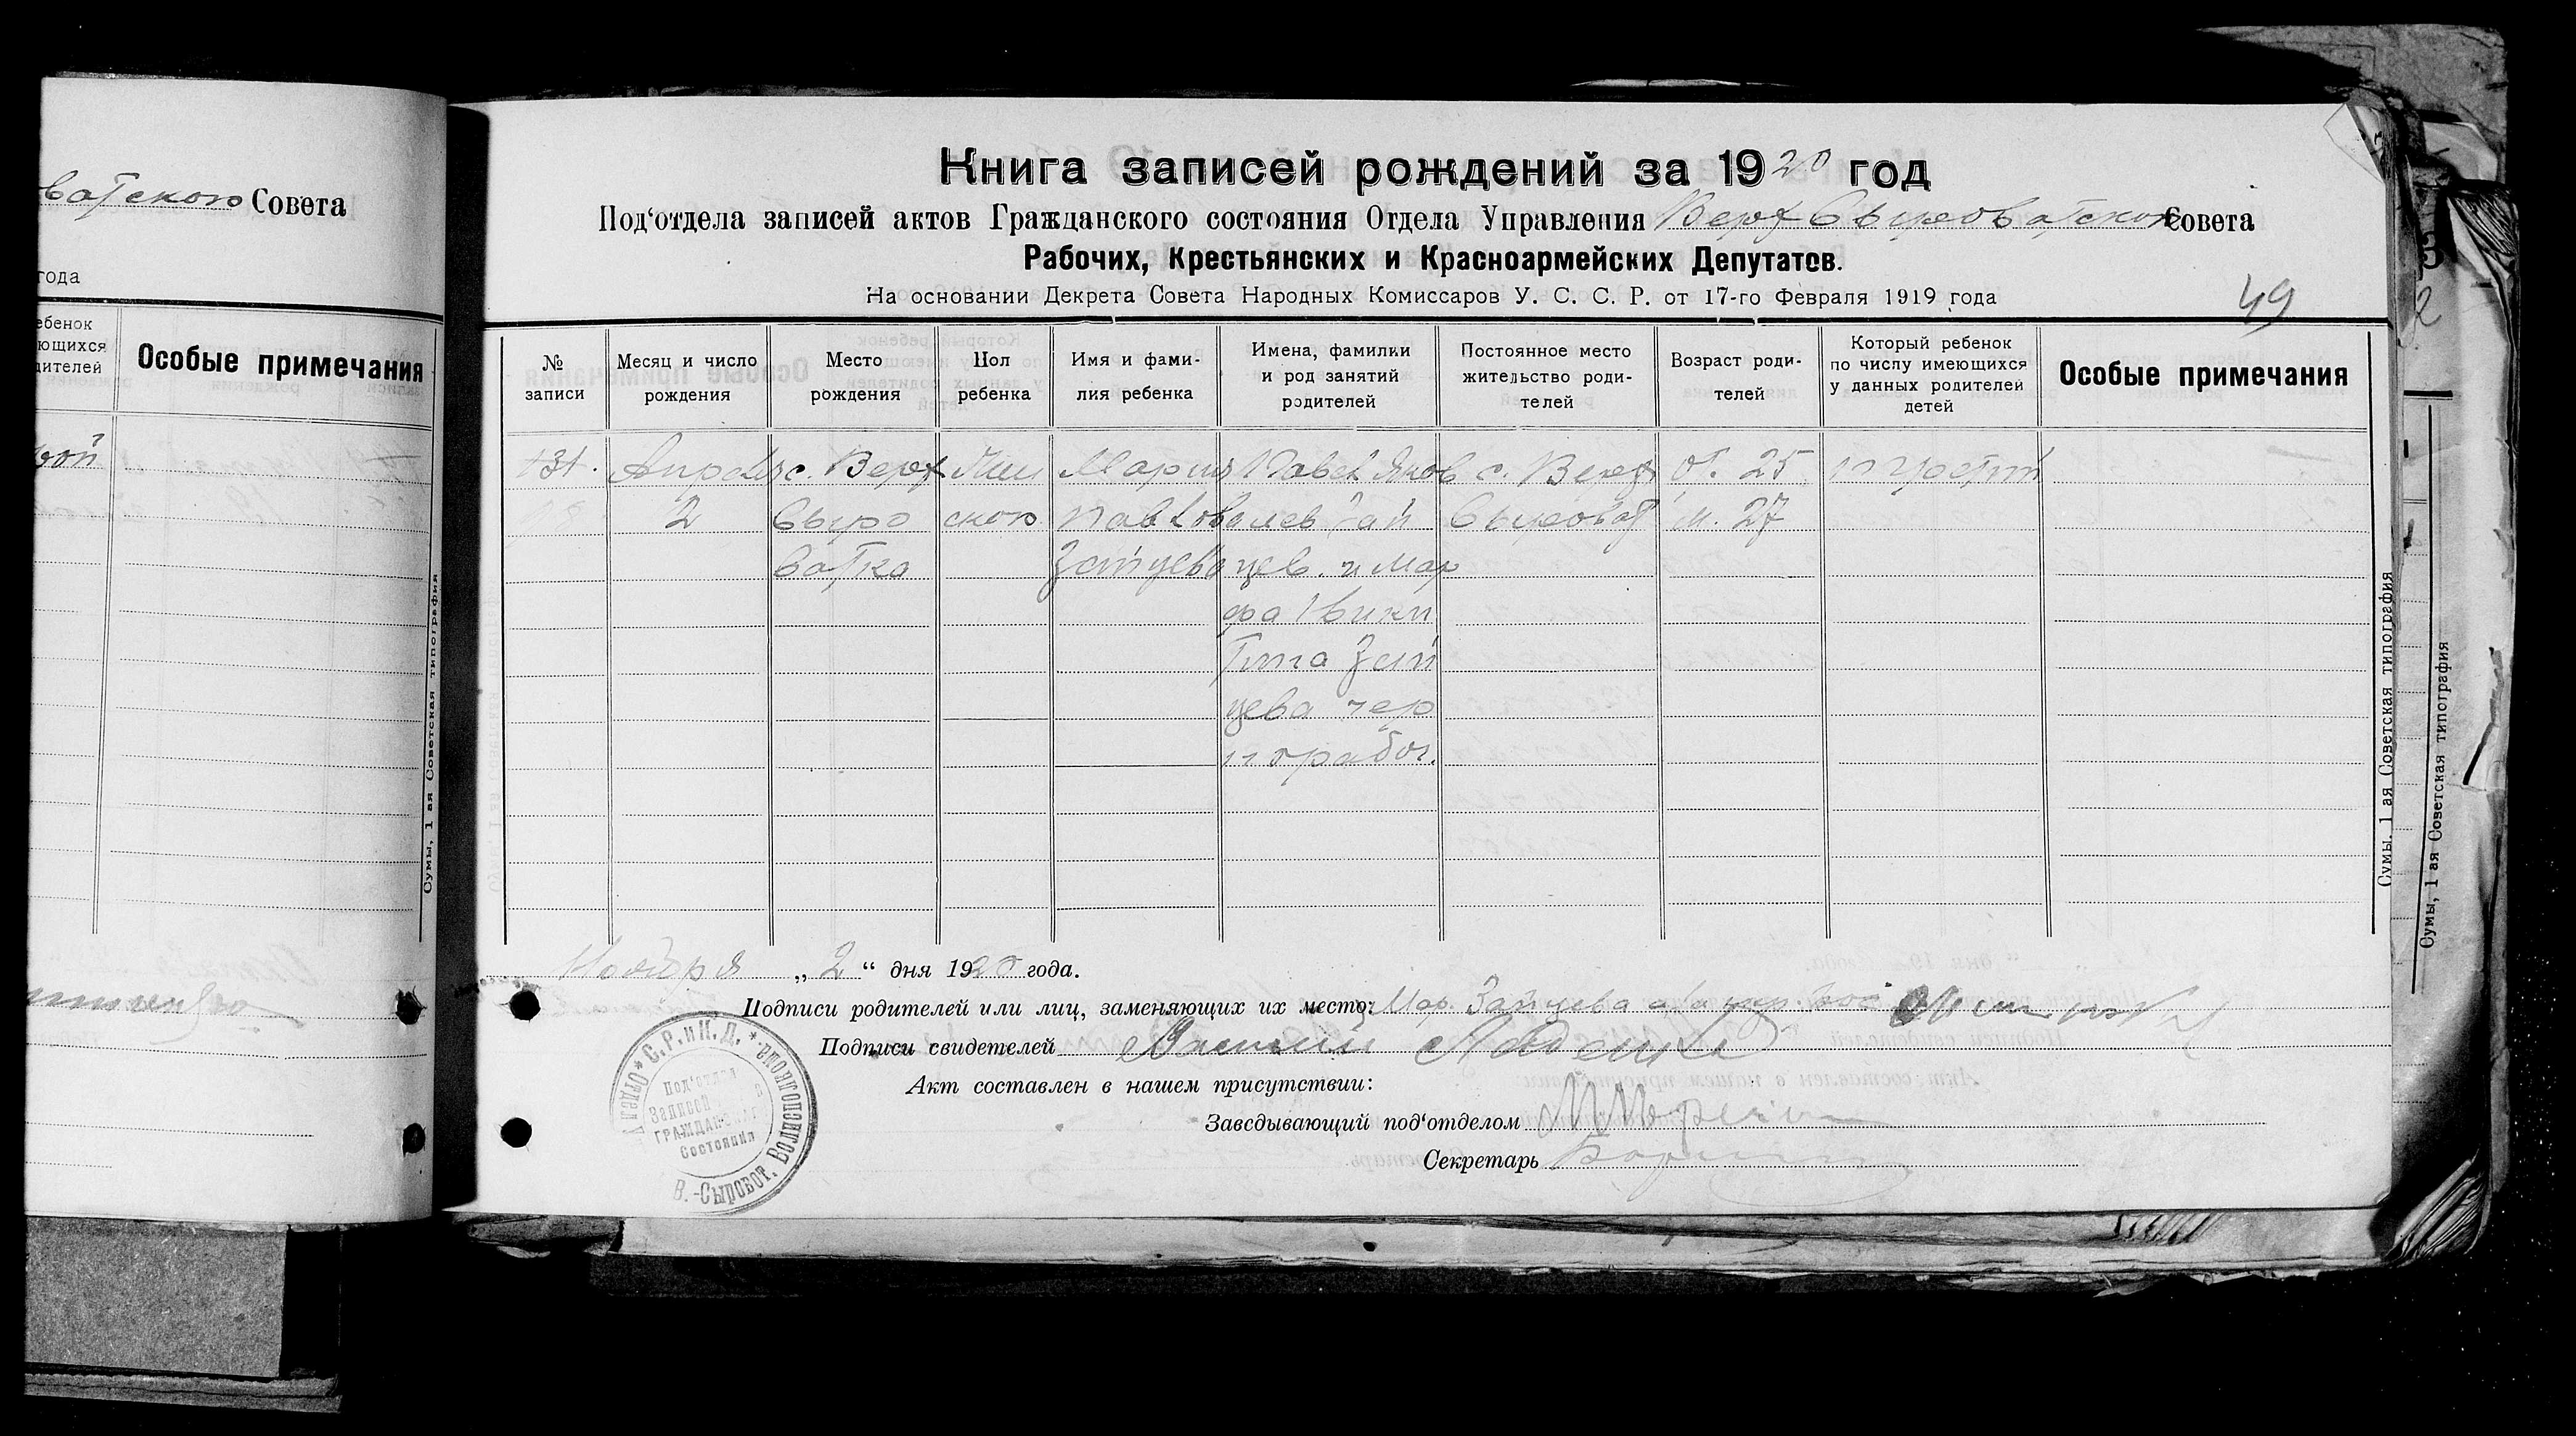 ватского Совета
года
ебенок
ющихся
дителей
Особые примечания
Сумы, 1 ая Советская типография
Книга записей рождений за 1920 год
Под‘отдела записей актов Гражданского состояния Отдела Управления Верх Сыроватском Совета
Рабочих, Крестьянских и Красноармейских Депутатов.
На основании Декрета Совета Народных Комиссаров У. С. С. Р. от 17-го Февраля 1919 года
49
№ записи
Месяц и число рождения
Место рождения
Пол ребенка
Имя и фамилия ребенка
Имена, фамилии и род занятий родителей
Постоянное место жительство родителей
Возраст родителей
Который ребенок по числу имеющихся у данных родителей детей
Особые примечания
131. Апреля с. Верх Жен Мария Павел Яков с. Верх от. 25 третий
2 Сыро ского Пав Зай Сыроват м. 27
ватка Зайцева цев. и Мар
фа Ники
Зай
цева чер
норабоч.
Сумы, 1 ая Советская типография
Сумы, 1 ая Советская типография
Ноября „2“ дня 1920 года.
Подписи родителей или лиц, заменяющих их место: Мар. Зайцева
Подписи свидетелей Василий
Акт составлен в нашем присутствии:
Заведывающий под‘отделом
Секретарь
Отдел * С.Р.и К.Д. *
В.-Сыроват. Волисполкома.
Под‘отдел
Записей
ГРАЖДАНСКОГО
Состояния